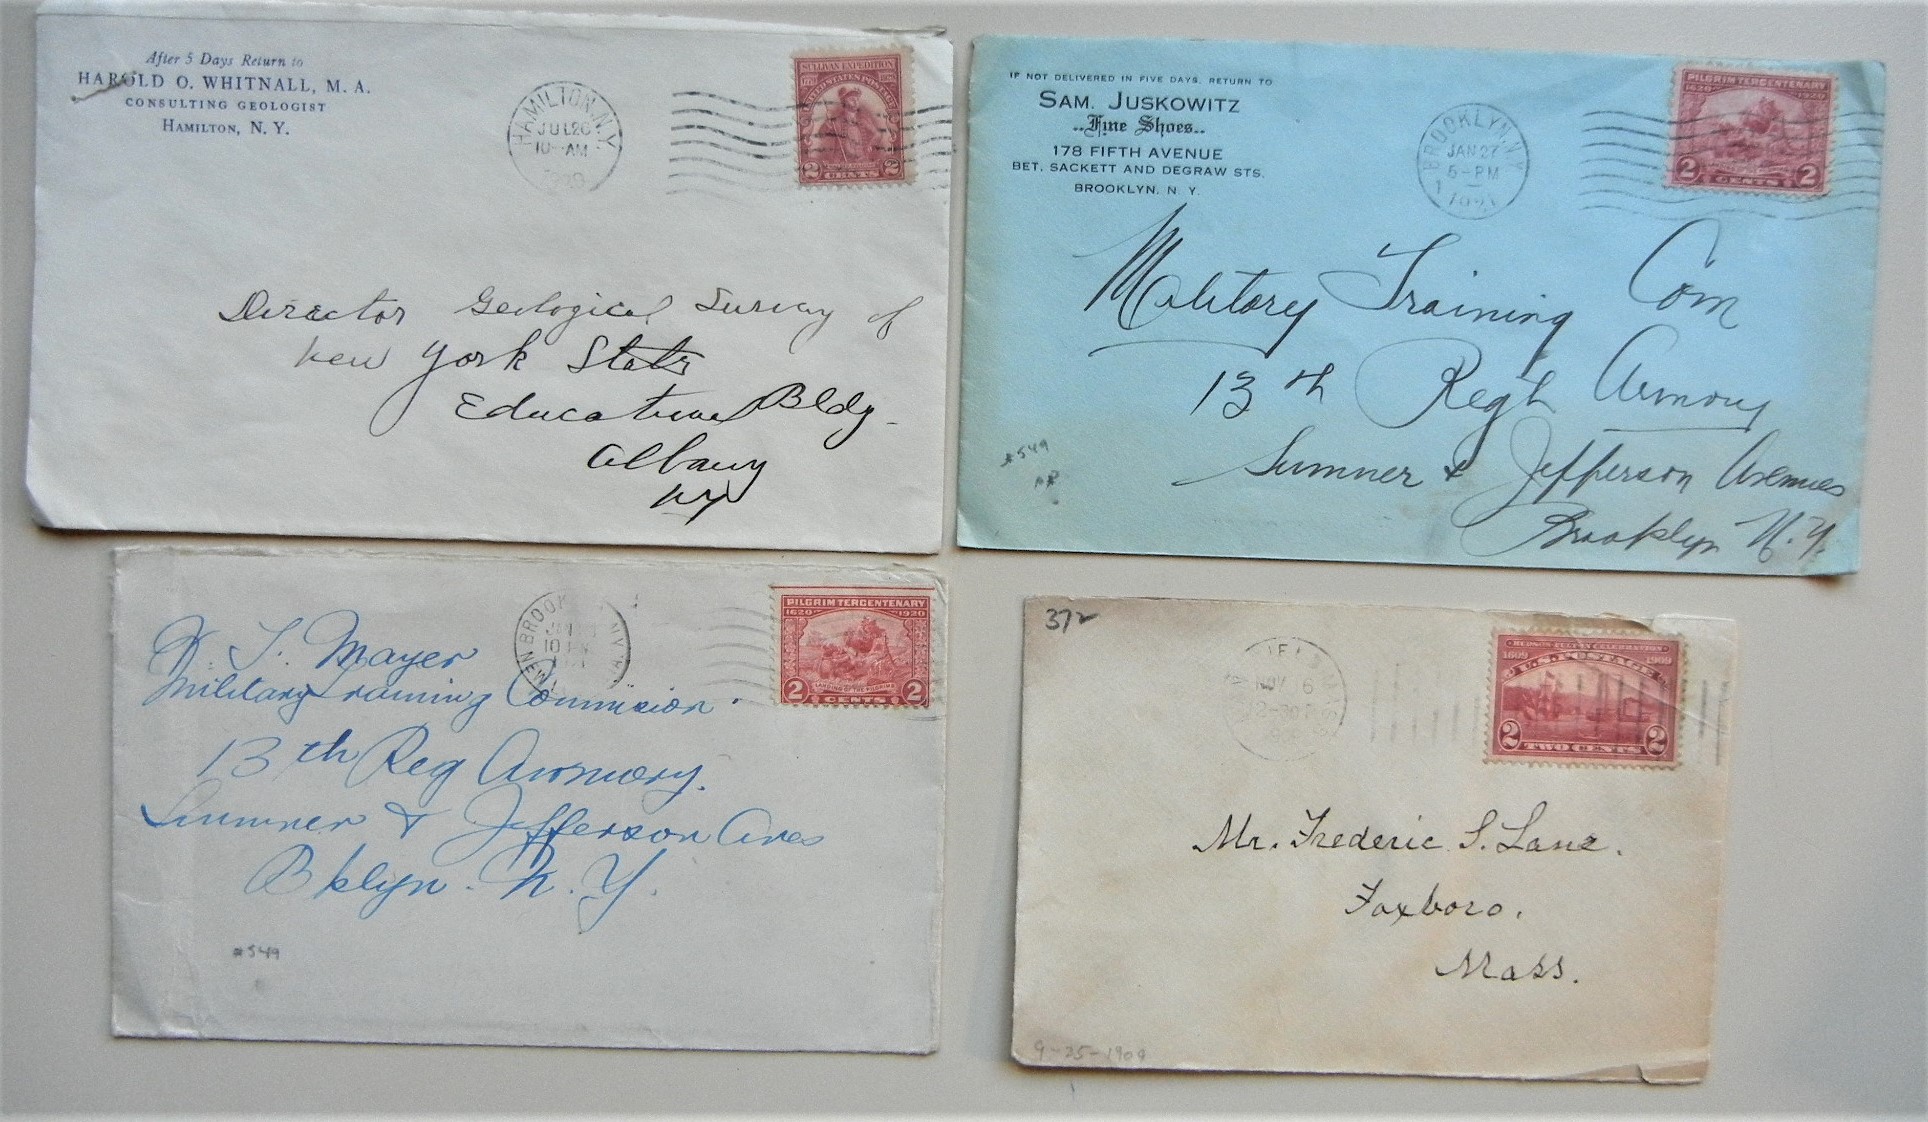 After 5 Days Return to
HAROLD O. WHITNALL, M. A.
CONSULTING GEOLOGIST
HAMILTON, N. Y.
HAMILTON, N.Y.
JUL 26
10-AM
SULLIVAN EXPEDITION
UNITED STATES POSTAGE
2 CENTS 2
Director Geological Survey of
New York State
Education Bldg.
Albany
NY
IF NOT DELIVERED IN FIVE DAYS, RETURN TO
SAM. JUSKOWITZ
..Fine Shoes..
178 FIFTH AVENUE
BET. SACKETT AND DEGRAW STS.
BROOKLYN, N. Y.
BROOKLYN, N.Y.
JAN 27
5-PM
PILGRIM TERCENTENARY
1620 1920
2 CENTS 2
Military Training Com
13th Regt Armory
Sumner & Jefferson Avenues
Brooklyn N.Y.
#549
PILGRIM TERCENTENARY
1620 1920
LANDING OF THE PILGRIMS
2 CENTS 2
S. Mayer
Military Training Commission.
13th Reg Armory.
Sumner & Jefferson Aves
Bklyn. N.Y.
#549
372
NOV 6
HUDSON-FULTON CELEBRATION
1609 1909
U.S. POSTAGE
2 TWO CENTS 2
Mr. Frederic S. Lane.
Foxboro.
Mass.
9-25-1909